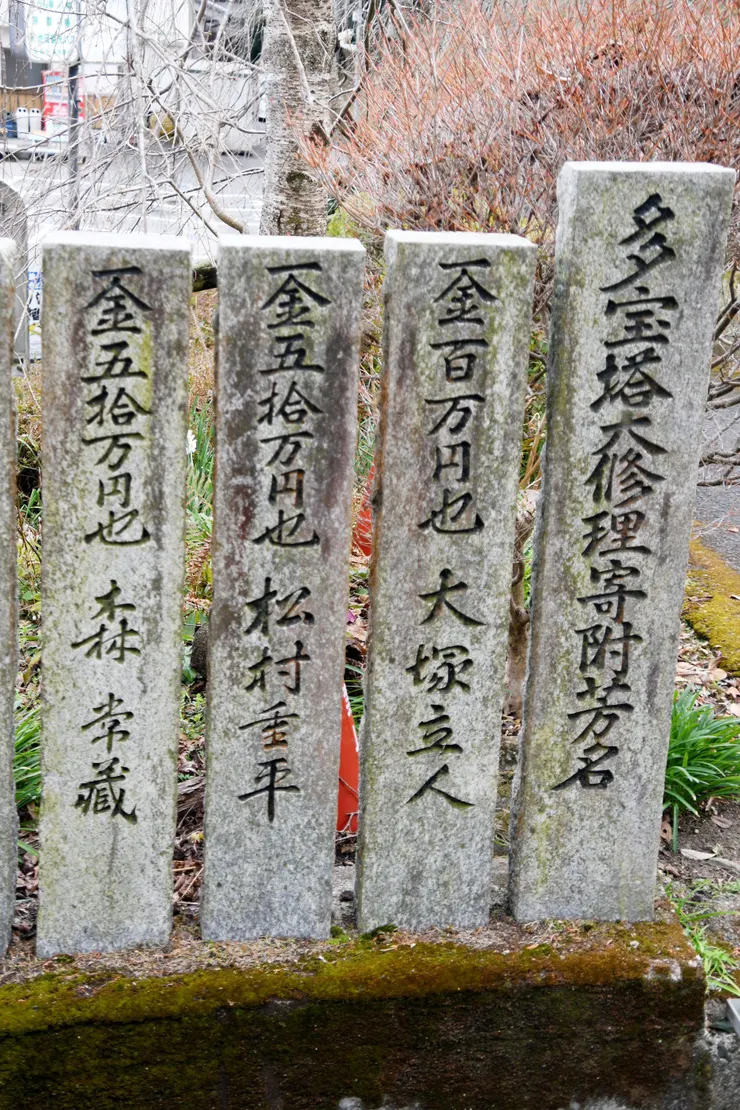 多多宝塔大修理寄附芳名
一金百万円也 大塚立人
一金五拾万円也 松村重平
一金五拾万円也 森 常蔵